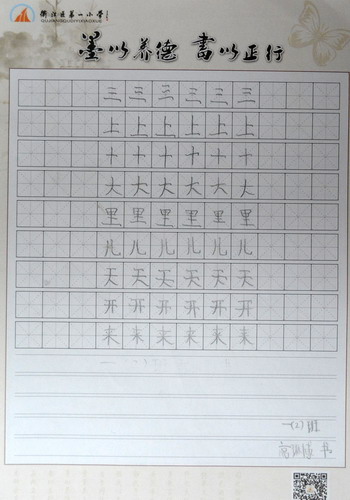 第一小学
墨以养德 書以正行
三三三三三三
上上上上上上
十十十十十十
大大大大大大
里里里里里里
儿儿儿儿儿儿
天天天天天天
开开开开开开
来来来来来来
一(2)班
书